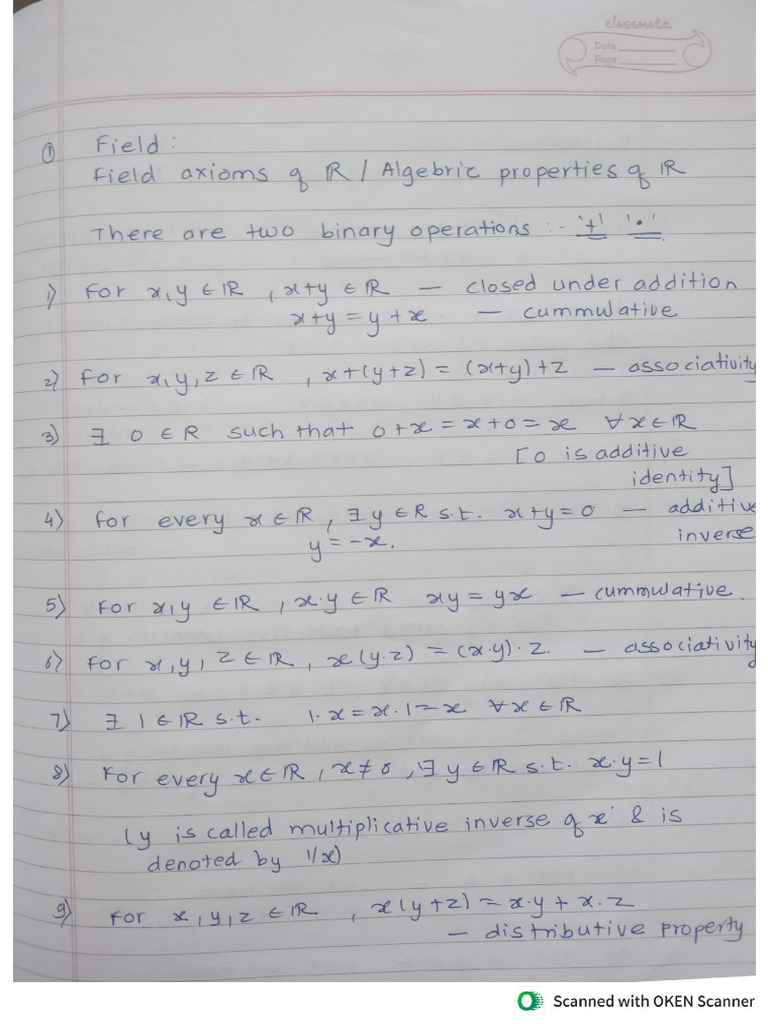 classmate
Date
Page
① Field :
Field axioms of ℝ / Algebric properties of ℝ
There are two binary operations :- '+' '•'
1) For x, y ∈ ℝ , x+y ∈ ℝ — closed under addition
x+y = y+x — cummulative
2) For x, y, z ∈ ℝ , x+(y+z) = (x+y)+z — associativity
3) ∃ 0 ∈ R such that 0+x = x+0 = x ∀ x ∈ ℝ
[0 is additive
identity]
4) for every x ∈ ℝ , ∃ y ∈ R s.t. x+y = 0 — additive
y = -x. inverse
5) For x, y ∈ ℝ , x·y ∈ ℝ xy = yx — cummulative.
6) For x, y, z ∈ ℝ , x(y·z) = (x·y)·z. — associativity
7) ∃ 1 ∈ ℝ s.t. 1·x = x·1 = x ∀ x ∈ ℝ
8) For every x ∈ ℝ , x ≠ 0 , ∃ y ∈ ℝ s.t. x·y = 1
(y is called multiplicative inverse of x & is
denoted by 1/x)
9) For x, y, z ∈ ℝ , x(y+z) = x·y + x·z
— distributive property
Scanned with OKEN Scanner